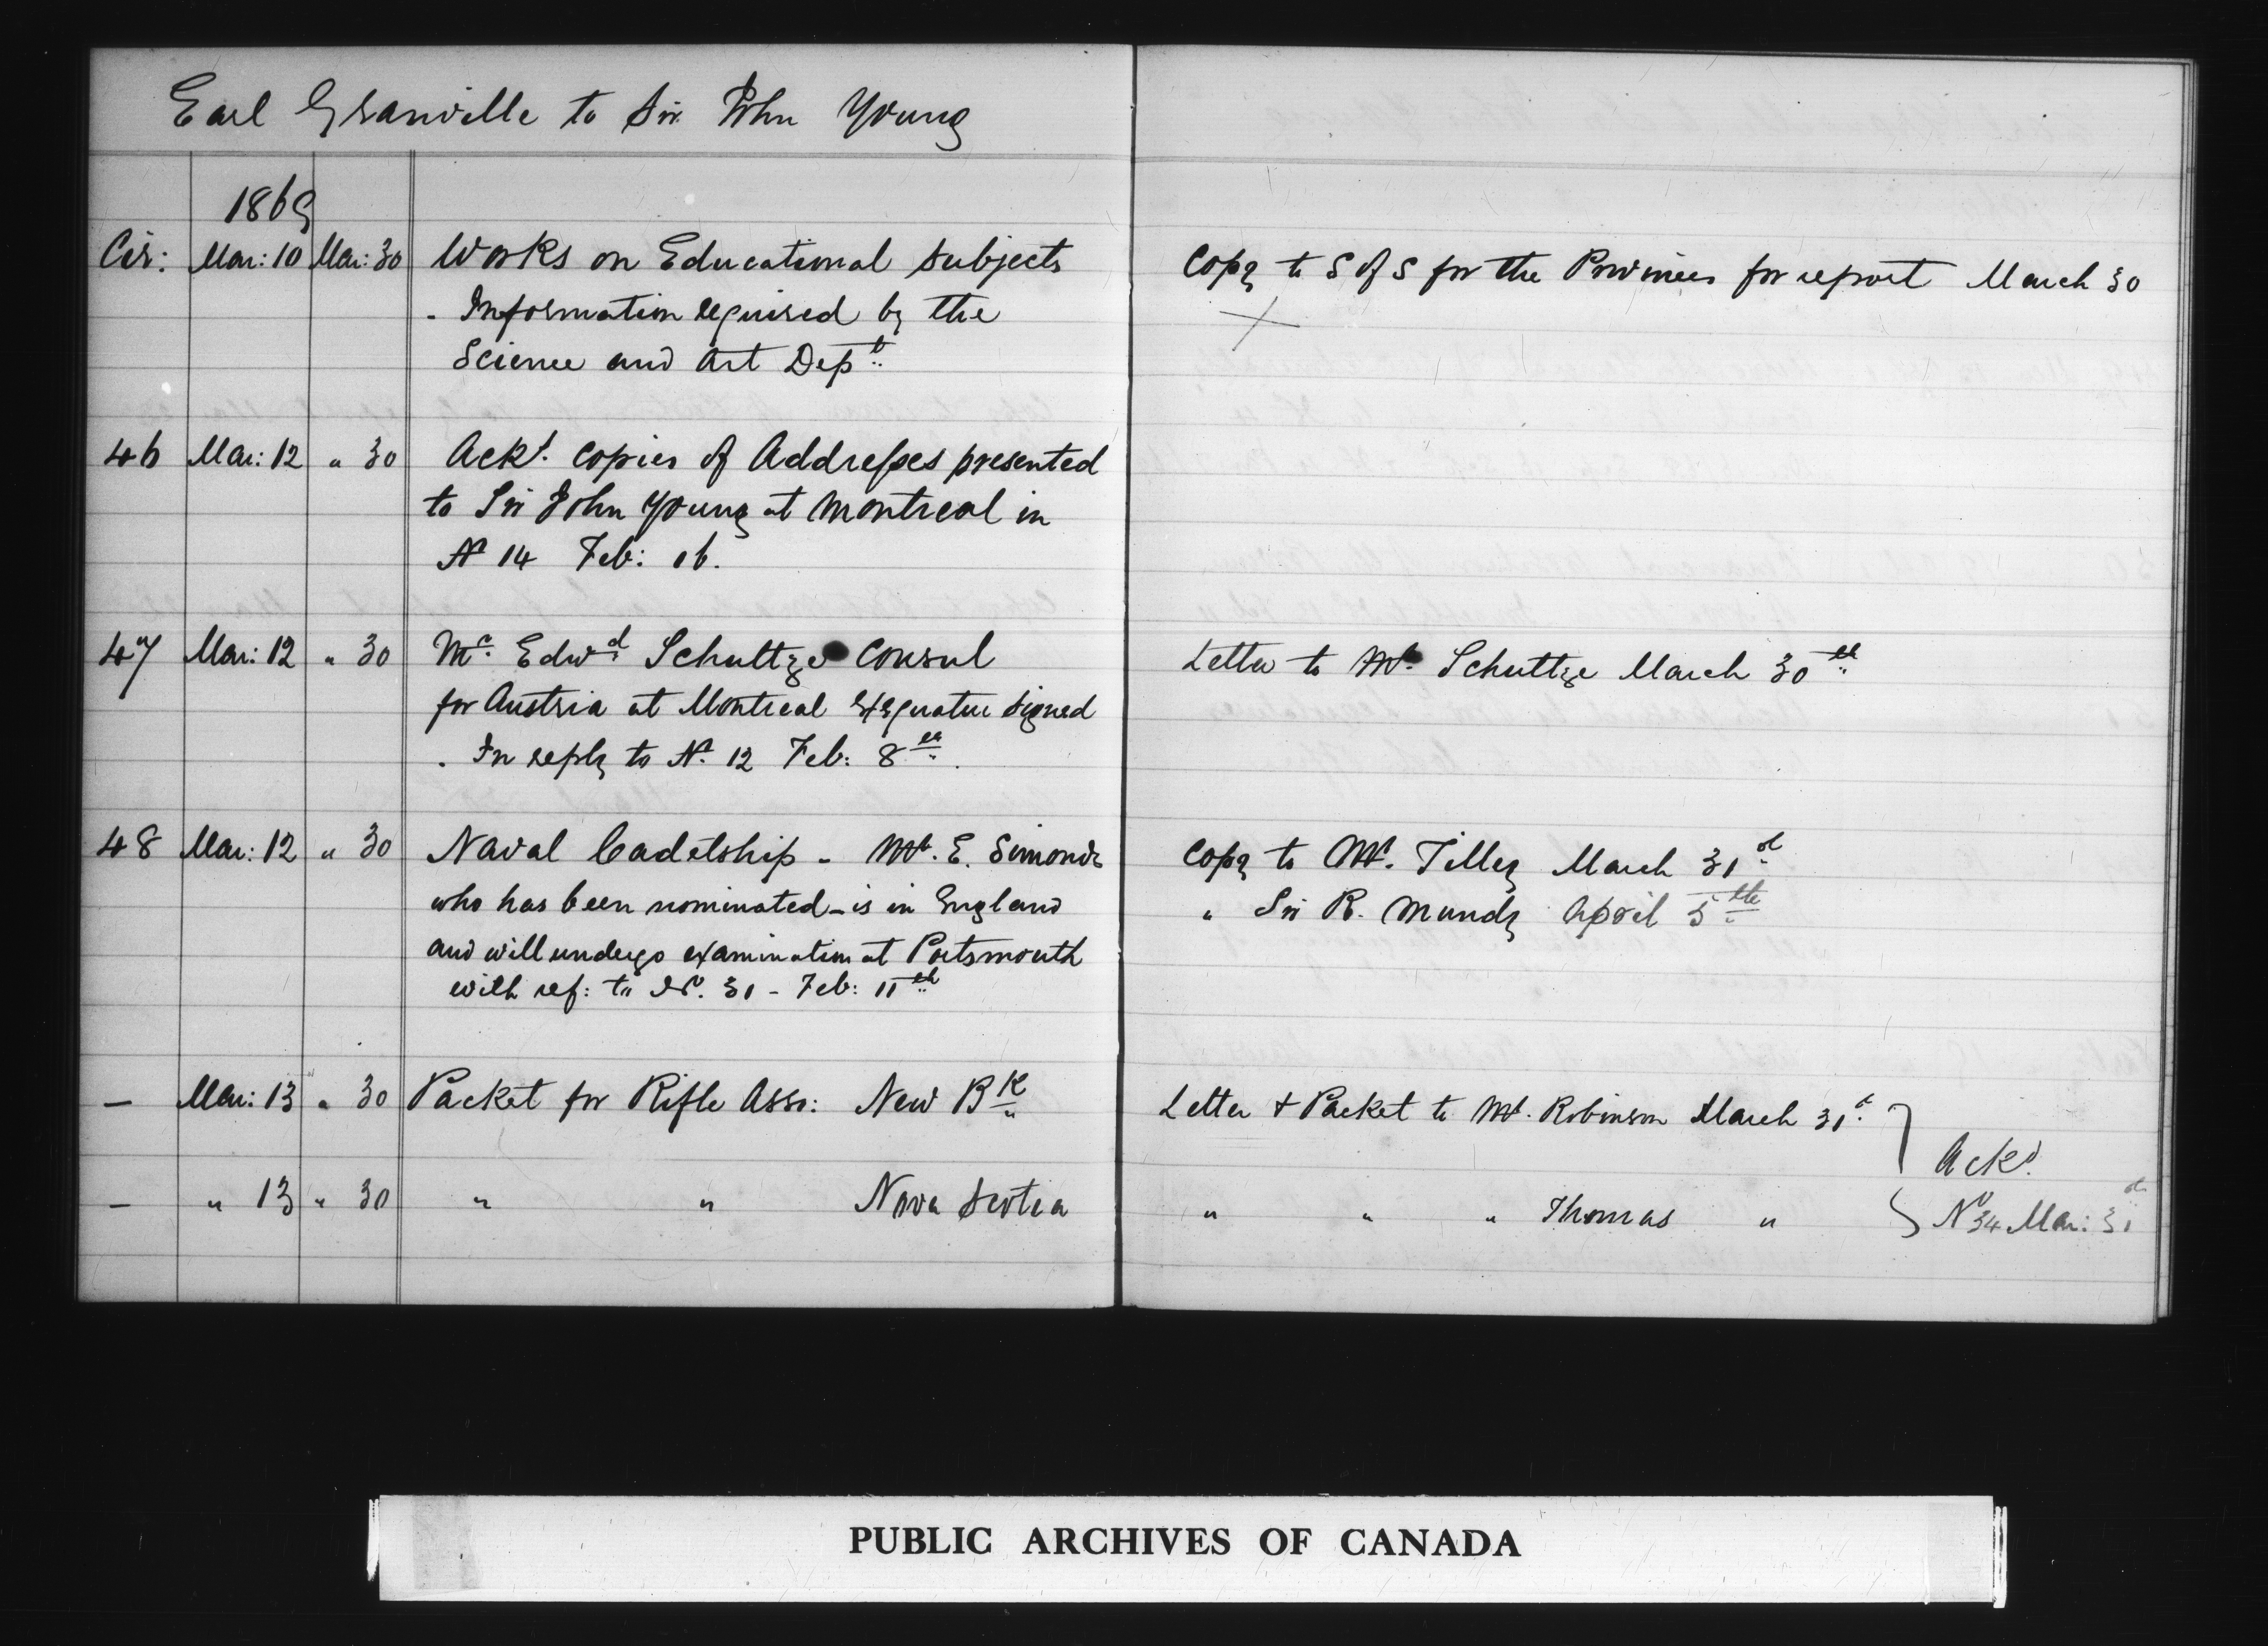 Earl Granville to Sir John Young
1869
Cir: Mar: 10 Mar: 30 Works on Educational Subjects
- Information required by the
Science and Art Dept.
Copy to S of S for the Provinces for report March 30
46 Mar: 12 " 30 Ackd. copies of Addresses presented
to Sir John Young at Montreal in
No 14 Feb: 16.
47 Mar: 12 " 30 Mr. Edwd Schultze Consul
for Austria at Montreal Exequatur signed
. In reply to No. 12 Feb: 8th.
Letter to Mr. Schultze March 30th
48 Mar: 12 " 30 Naval Cadetship - Mr. E. Simonds
who has been nominated - is in England
and will undergo examination at Portsmouth
with ref: to No. 31 - Feb: 11th
Copy to Mr. Tilley March 31st
" Sir R. Mundy April 5th
— Mar: 13 " 30 Packet for Rifle Asso: New BK
Letter & Packet to Mr. Robinson March 31st.
Ackd.
— " 13 " 30 " " Nova Scotia
" " " Thomas "
No 34 Mar: 31st
PUBLIC ARCHIVES OF CANADA